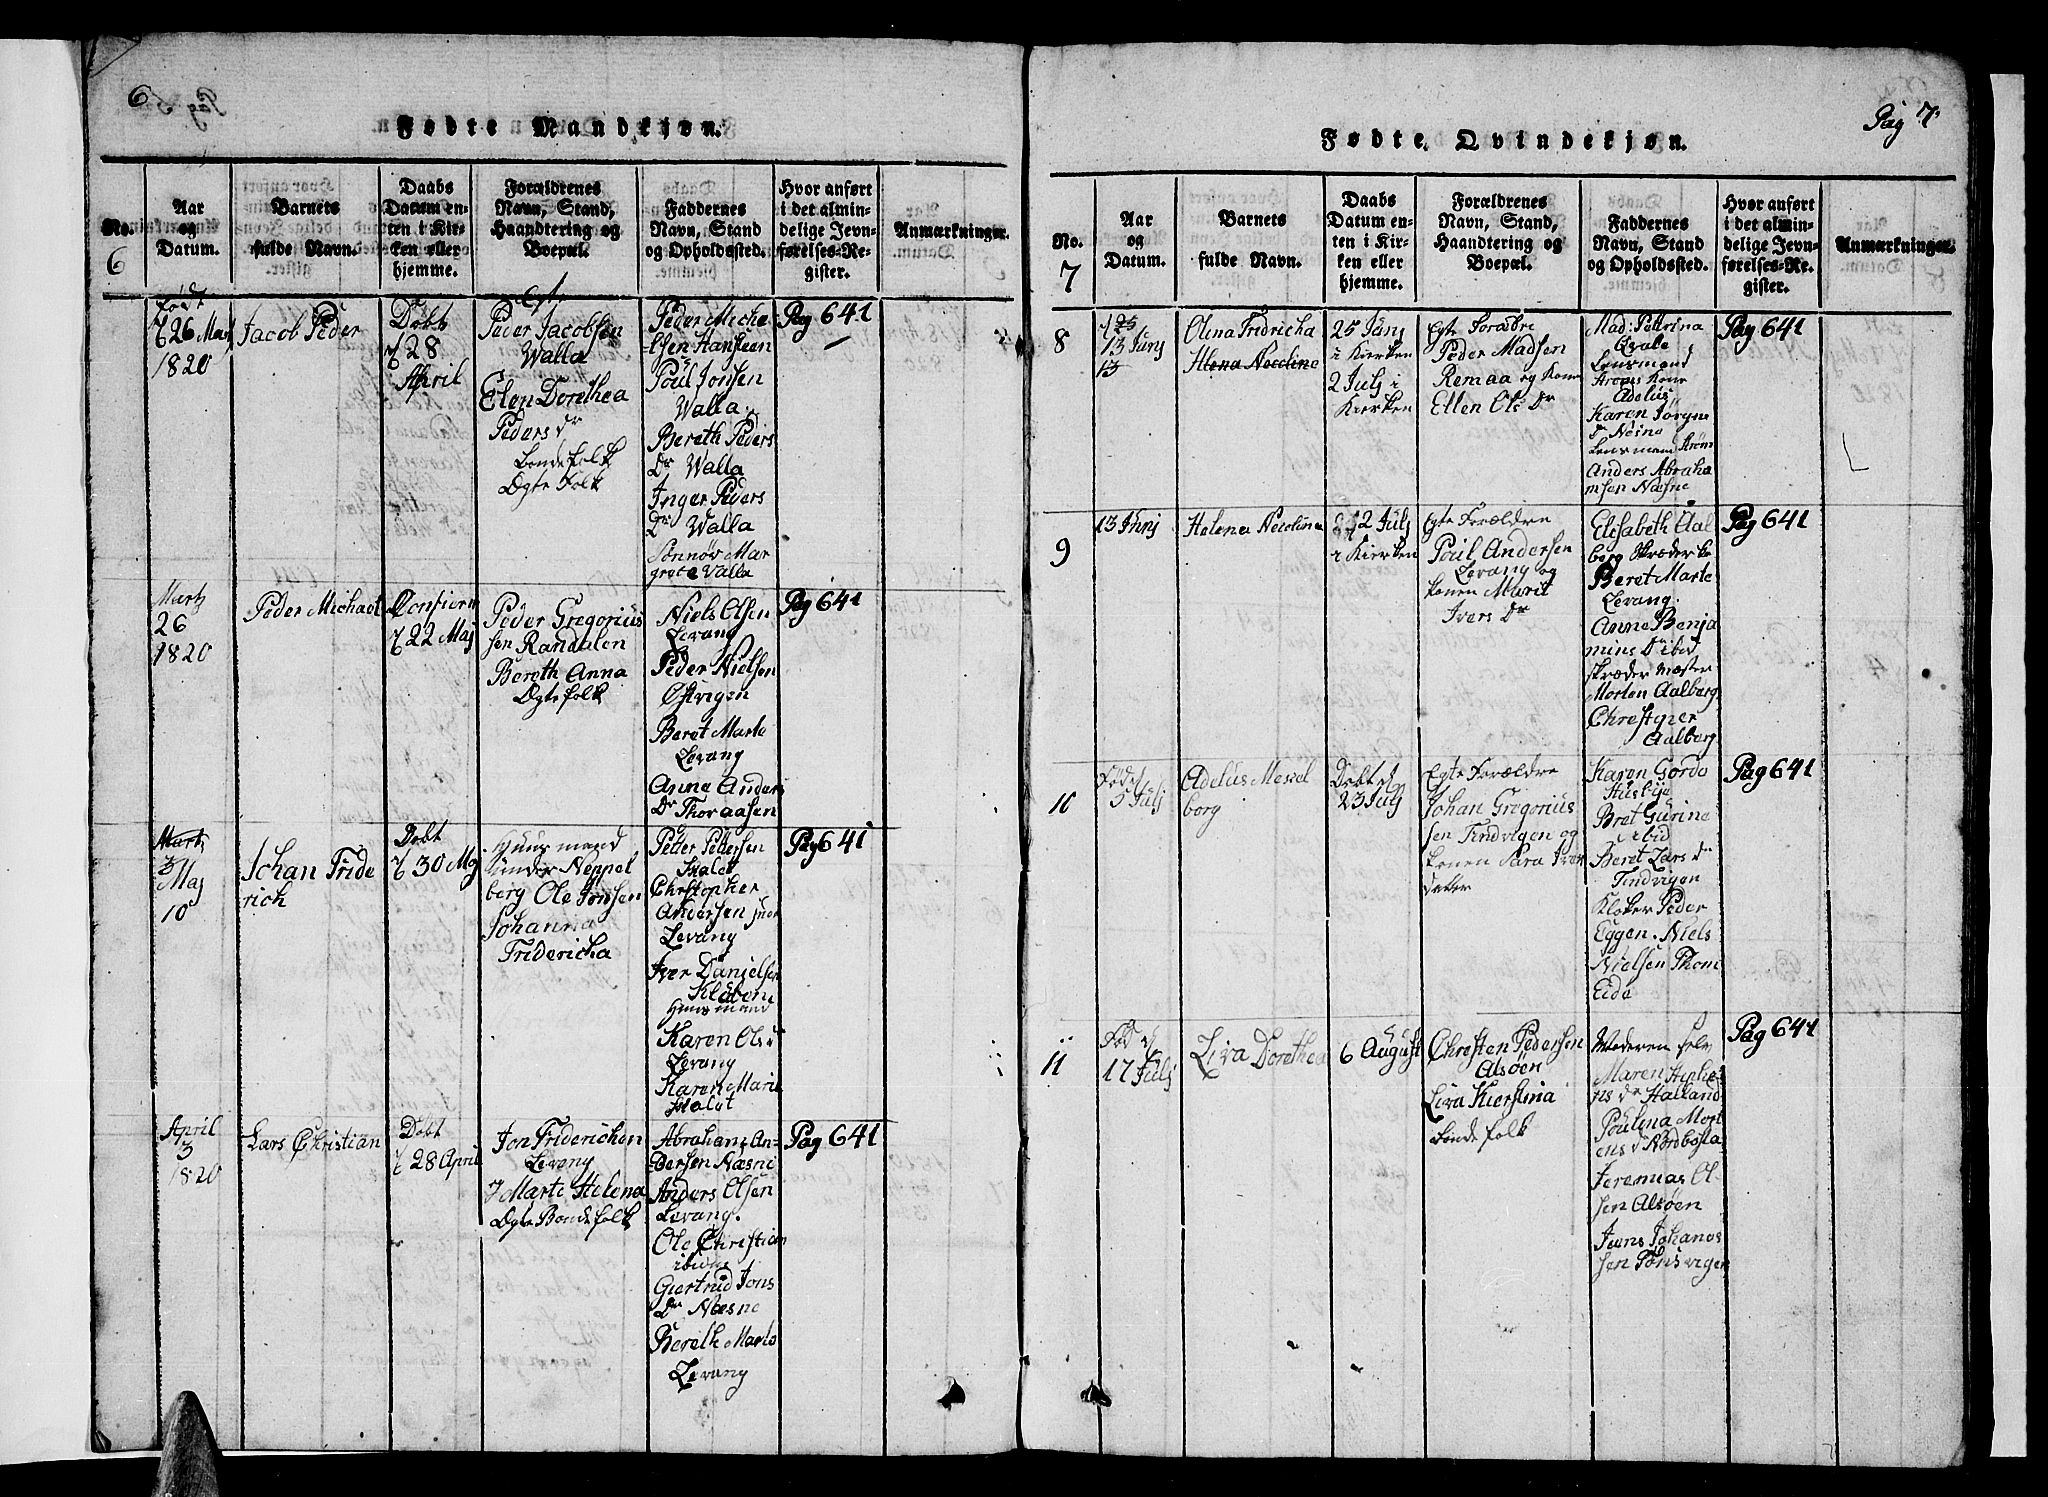 6
Fødte Mandkjøn.
No.
6
Aar
og
Datum.
Barnets
fulde Navn.
Daabs
Datum en-
ten i Kir-
ken eller
hjemme.
Forældrenes
Navn, Stand,
Haandtering og
Boepæl.
Faddernes
Navn, Stand
og Opholdssted.
Hvor anført
i det almin-
delige Jevn-
førelses-Re-
gister.
Anmærkninger.
født
26 Mart
1820
Jacob Peder
Døbt
28
April
Peder Jacobsen
Walla
Elen Dorethea
Peders dr
Bondefolk
Ægte Folk
Peder Miche
lsen Hansteen
Poül Jonsen
Walla
Bereth Peders
Dr Walla
Inger Peders
Dr Walla
Sønnøv Mar
grete Valla
Pag 641
Martz
26
1820
Peder Michael
Confierm
22 Maj
Peder Gregoriüs
sen Randalen
Bereth Anna
Ægtefolk
Niels Olsen
Levang
Peder Nielsen
Østvigen
Beret Marte
Levang
Anne Anders
Dr Thoraasen
Pag 641
Mart
3
Maj
10
Johan Fride
rich
Døbt
30 Maj
Huusmand
ünder Neppel
berg Ole Jonsen
Johanna
Fridericha
Peder Pedersen
Skalet
Christopher
Andersen
Levang
Iver Danjelsen
Klüben
Huusmand
Karen Ols d
Levang
Karen Marie
Skalet
Pag 641
April
3
1820
Lars Christian
Døbt
28 April
Jon Friderichen
Levang
Marte Helena
Ægte Bondefolk
Abraham An-
dersen Næsne
Anders Olsen
Levang.
Ole Christian
ibidem
Giertrud Jons
Dr Næsne
Bereth Marte
Levang
Pag 641
Pag 7
Fødte Qvindekjøn.
No.
7
Aar
og
Datum.
Barnets
fulde Navn.
Daabs
Datum en-
ten i Kir-
ken eller
hjemme.
Forældrenes
Navn, Stand,
Haandtering og
Boepæl.
Faddernes
Navn, Stand
og Opholdssted.
Hvor anført
i det almin-
delige Jevn-
førelses-Re-
gister.
Anmærkninger.
8
13 Junj
13
Olina Fridricha
Hlena Necolina
25 Junj
i Kierken
2 Julj i
Kierken
Egte Foræbre
Peder Madsen
Remaa og Kone
Ellen Ols Dr
Mad: Pettrina
Qvale
Lensmand
Arøms Kone
Adelüs
Karen Jørgens
d Nesna
Lensmann Arøm
Anders Abraha
msen Næsne
Pag 641
9
13 Junj
Helena Necolina
2 Julj
i Kierken
Egte Forældre
Poül Andersen
Levang og
konen Marit
Ivers Dr
Elisabeth Aal
borg Skræderske
Beret Marte
Levang
Anne Benja
mins D ibid
Skræder Mæster
Morten Aalborg
Chrestpher
Aalborg
Pag 641
10
Føde
5 Julj
Adelüs Messel
borg
Døbt
23 Julj
Egte Forældre
Johan Gregoriüs
sen Tindvigen og
konen Sara Ivers
dater
Karen Gordo
Hüsbye
Bret Gürine
ibid
Beret Lars dr
Tindvigen
Kloker Peder
Eggen. Niels
Nielsen
Eide
Pag 641
11
Fød
17 Julj
Liva Dorethea
6 August
Chresten Pedersen
Alsøen
Liva Kierstina
Bonde folk
Moderen selv
Maren Henrke-
ns dr Halland
Poülina Mort
ens d Nordbosta
Jeremias Ol
sen Alsøen
Jens Johanes
sen Tønsvigen
Pag 641